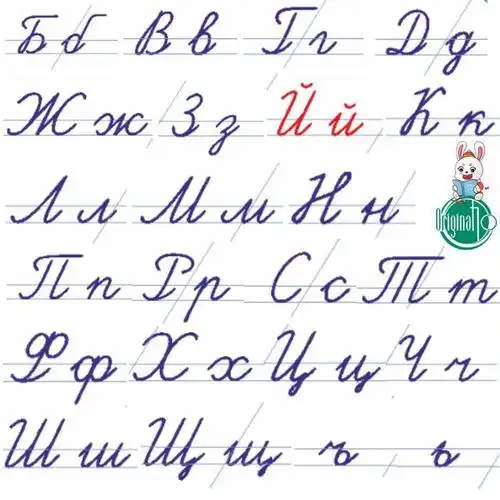 Б б В в Г г Д д
Ж ж З з Й й К к
Л л М м Н н
Original
П п Р р С с Т т
Ф ф Х х Ц ц Ч ч
Ш ш Щ щ ъ ь